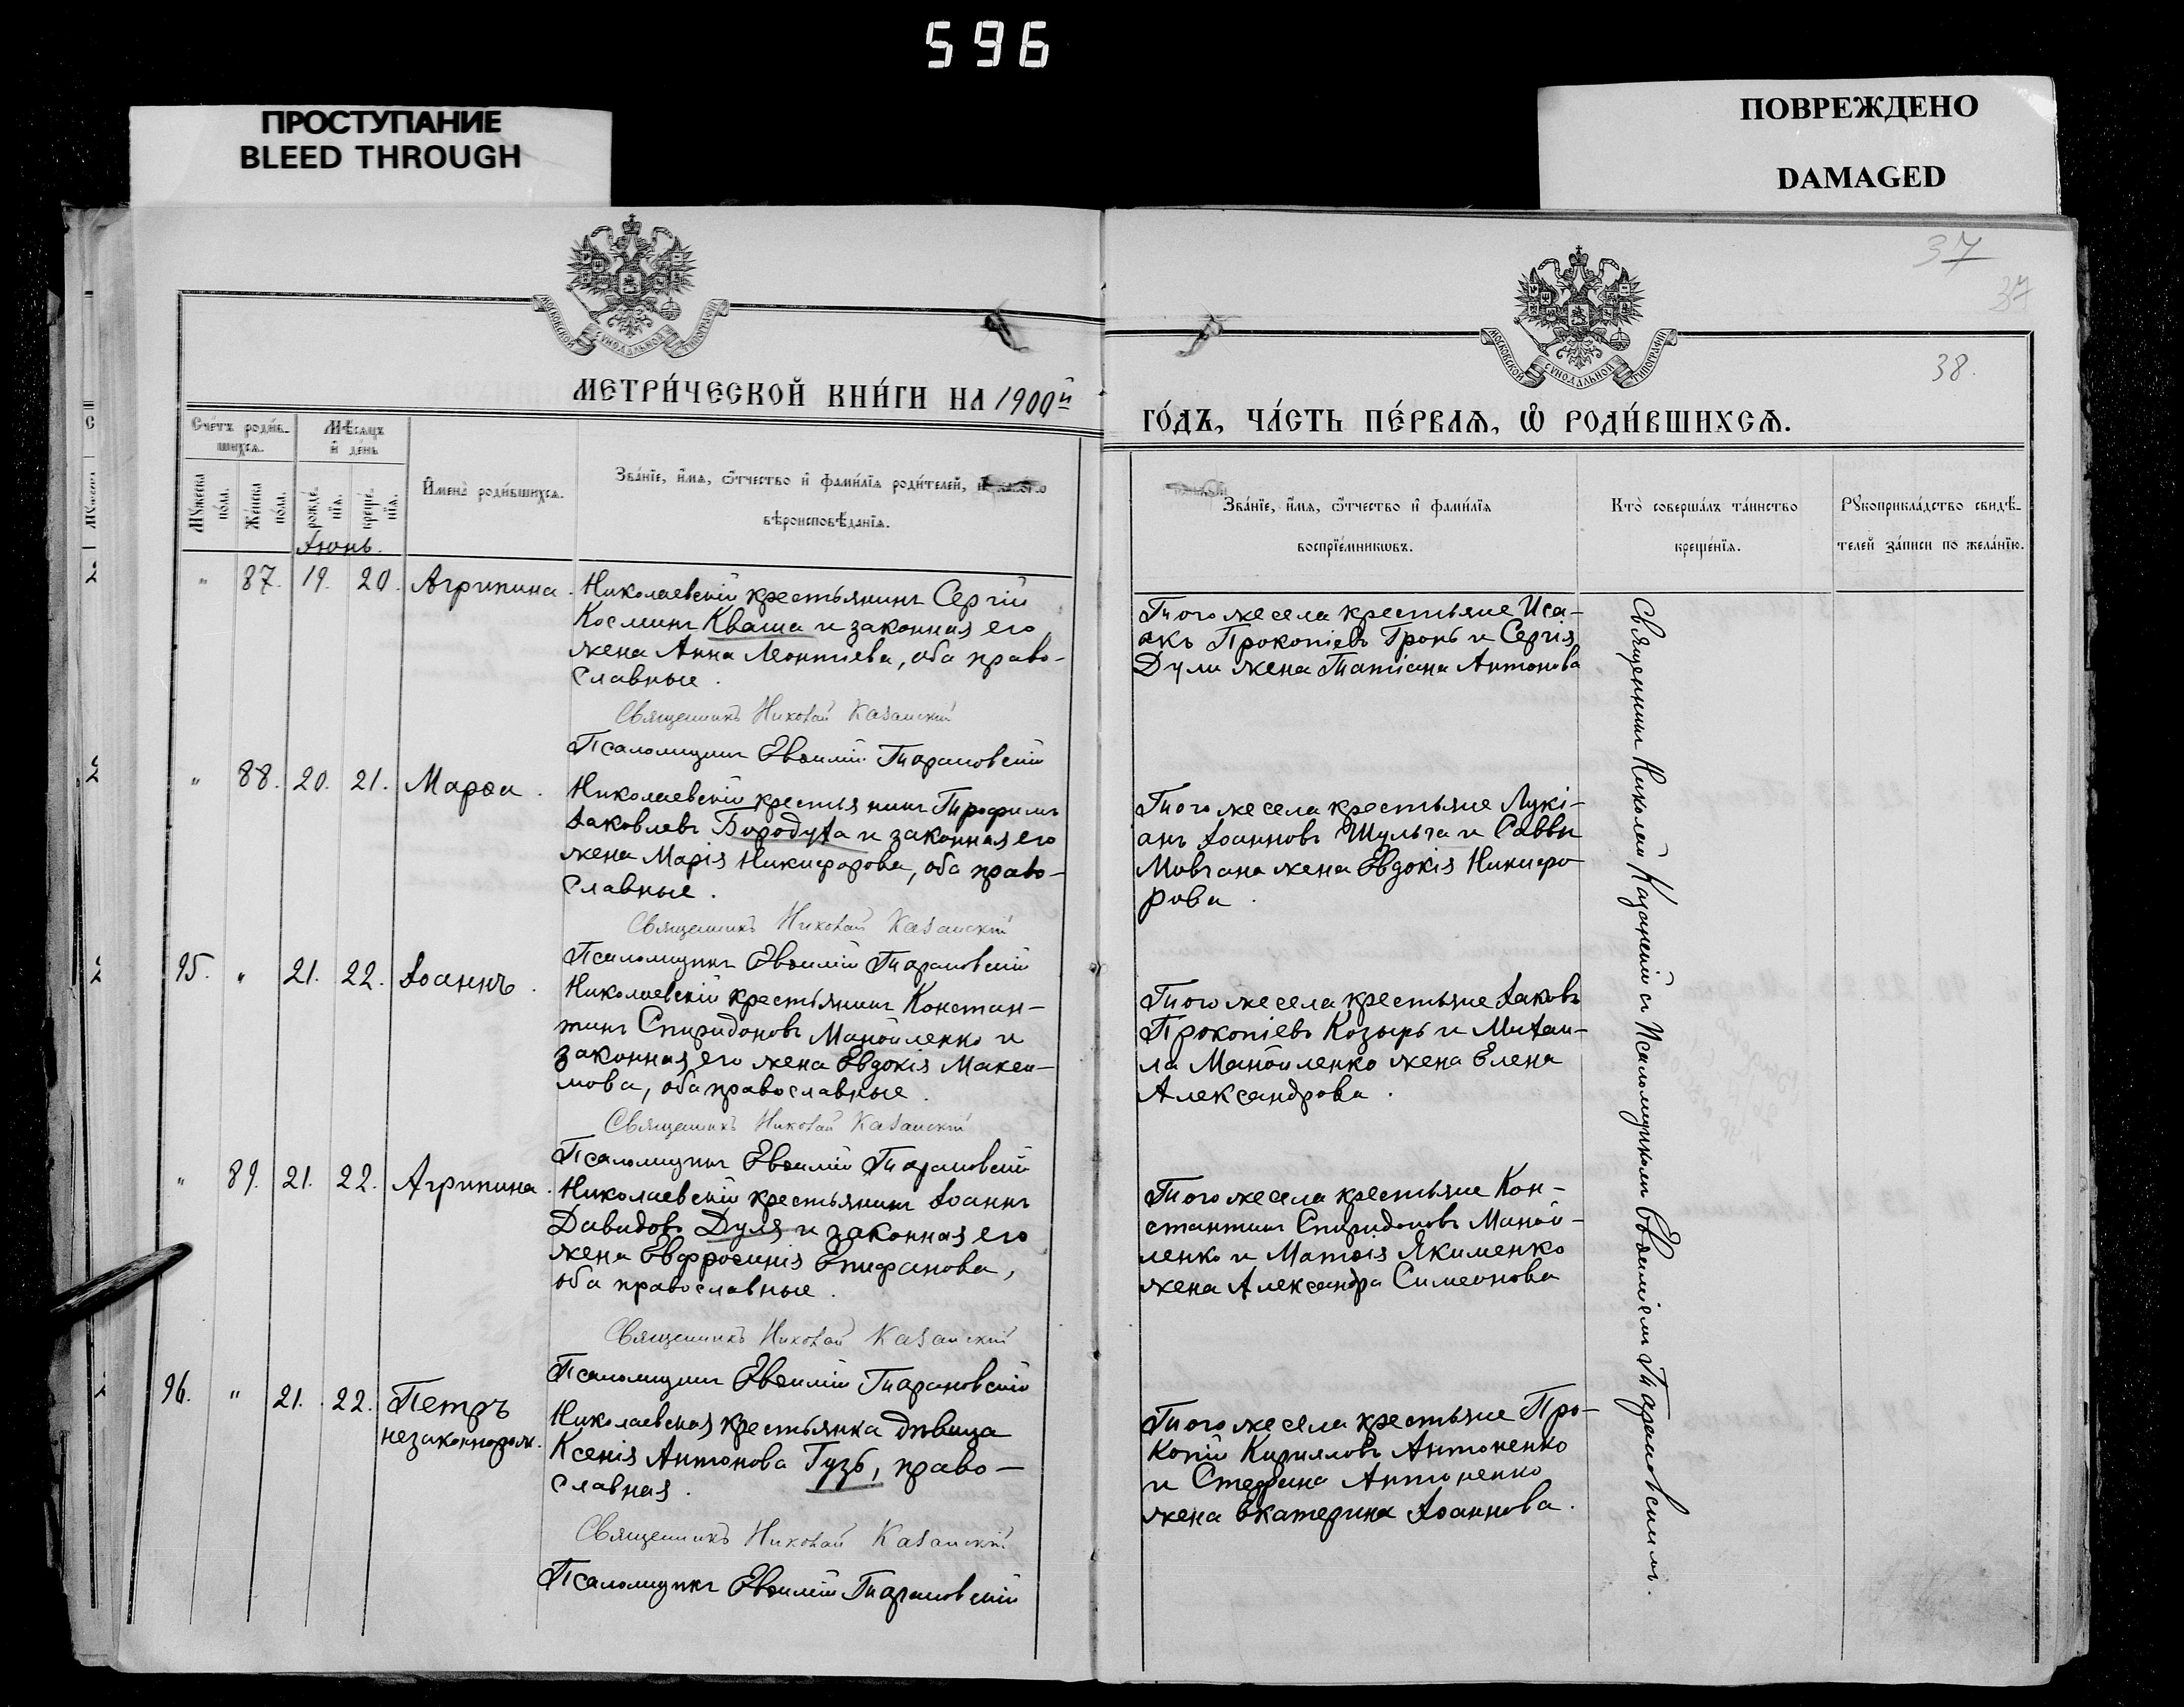 596
ПРОСТУПАНИЕ
BLEED THROUGH
ПОВРЕЖДЕНО
DAMAGED
37
37
38.
МОСКОВСКОЙ СѴНОДАЛЬНОЙ ТИПОГРАФІИ
МОСКОВСКОЙ СѴНОДАЛЬНОЙ ТИПОГРАФІИ
МЕТРИ́ЧЕСКОЙ КНИ́ГИ НА 1900й
ГО́ДЪ, ЧА́СТЬ ПЕ́РВАѦ, Ѡ РОДИ́ВШИХСѦ.
Сче́тъ роди́в-
шихсѧ.
Мѣ́сѧцъ
и҆ де́нь
Мꙋ́жеска
по́ла.
Же́нска
по́ла.
рожде́-
нїѧ.
креще́-
нїѧ.
Имена̀ роди́вшихсѧ.
Зва́нїе, и҆́мѧ, ѻ҆́тчество и҆ фами́лїѧ роди́телей,
вѣроисповѣ́данїѧ.
Зва́нїе, и҆́мѧ, ѻ҆́тчество и҆ фами́лїѧ
воспрїе́мникѡвъ.
Кто̀ соверша́лъ та́инство
креще́нїѧ.
Рꙋкоприкла́дство свидѣ́-
телей за́писи по жела́нїю.
Іюнь.
" 87. 19. 20. Агрипина.
Николаевскій крестьянинъ Сергій
Косминъ Кваша и законная его
жена Анна Леонтіева, оба право-
славные.
Священникъ Николай Казанскій
Псаломщикъ Евѳимій Тарановскій
Того же села крестьяне Иса-
акъ Прокопіевъ Гронь и Сергія
Дули жена Татіана Антонова
" 88. 20. 21. Марѳа.
Николаевскій крестьянинъ Трофимъ
Іаковлевъ Бородуха и законная его
жена Марія Никифорова, оба право-
славные.
Священникъ Николай Казанскій
Псаломщикъ Евѳимій Тарановскій
Того же села крестьяне Лукі-
анъ Іоанновъ Шульга и Саввы
Мовчана жена Евдокія Никифо
рова.
95. " 21. 22. Іоаннъ.
Николаевскій крестьянинъ Констан-
тинъ Спиридоновъ Манойленко и
законная его жена Евдокія Макси-
мова, оба православные.
Священникъ Николай Казанскій
Псаломщикъ Евѳимій Тарановскій
Того же села крестьяне Іаковъ
Прокопіевъ Козырь и Михаи-
ла Манойленко жена Елена
Александрова.
" 89. 21. 22. Агрипина.
Николаевскій крестьянинъ Іоаннъ
Давидовъ Дуля и законная его
жена Евфросинія Епифанова,
оба православные.
Священникъ Николай Казанскій
Псаломщикъ Евѳимій Тарановскій
Того же села крестьяне Кон-
стантинъ Спиридоновъ Маной-
ленко и Матѳія Якименко
жена Александра Симеонова
96. " 21. 22. Петръ
незаконнорож.
Николаевская крестьянка дѣвица
Ксенія Антонова Гузь, право-
славная.
Священникъ Николай Казанскій
Псаломщикъ Евѳимій Тарановскій
Того же села крестьяне Про-
копій Кирилловъ Антоненко
и Стефана Антоненко
жена Екатерина Іоаннова.
Священникъ Николай Казанскій съ Псаломщикомъ Евѳиміемъ Тарановскимъ.